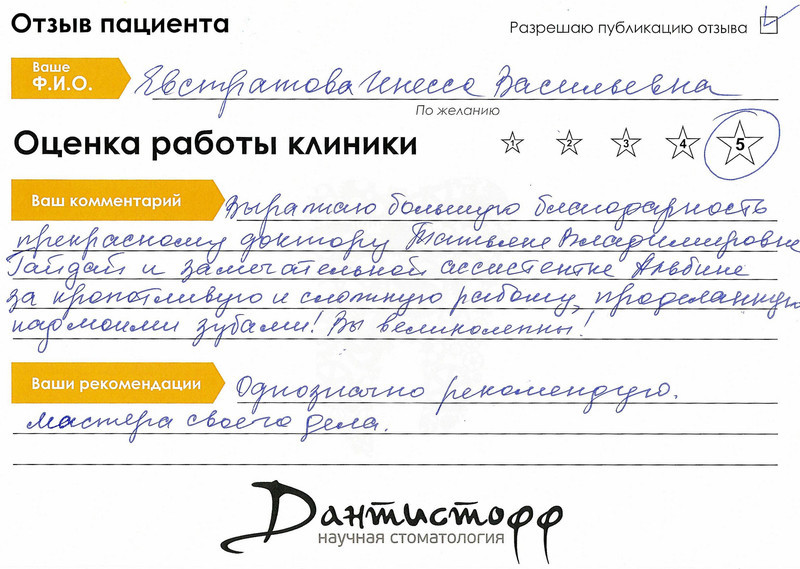 Отзыв пациента
Разрешаю публикацию отзыва
Ваше
Ф.И.О.
Евстратова Инесса Васильевна
По желанию
Оценка работы клиники
1 2 3 4 5
Ваш комментарий
Выражаю большую благодарность
прекрасному доктору Татьяне Владимировне
Гайдай и замечательной ассистентке Альбине
за кропотливую и сложную работу, проделанную
над моими зубами! Вы великолепны!
Ваши рекомендации
Однозначно рекомендую.
Мастера своего дела.
Дантистофф
научная стоматология